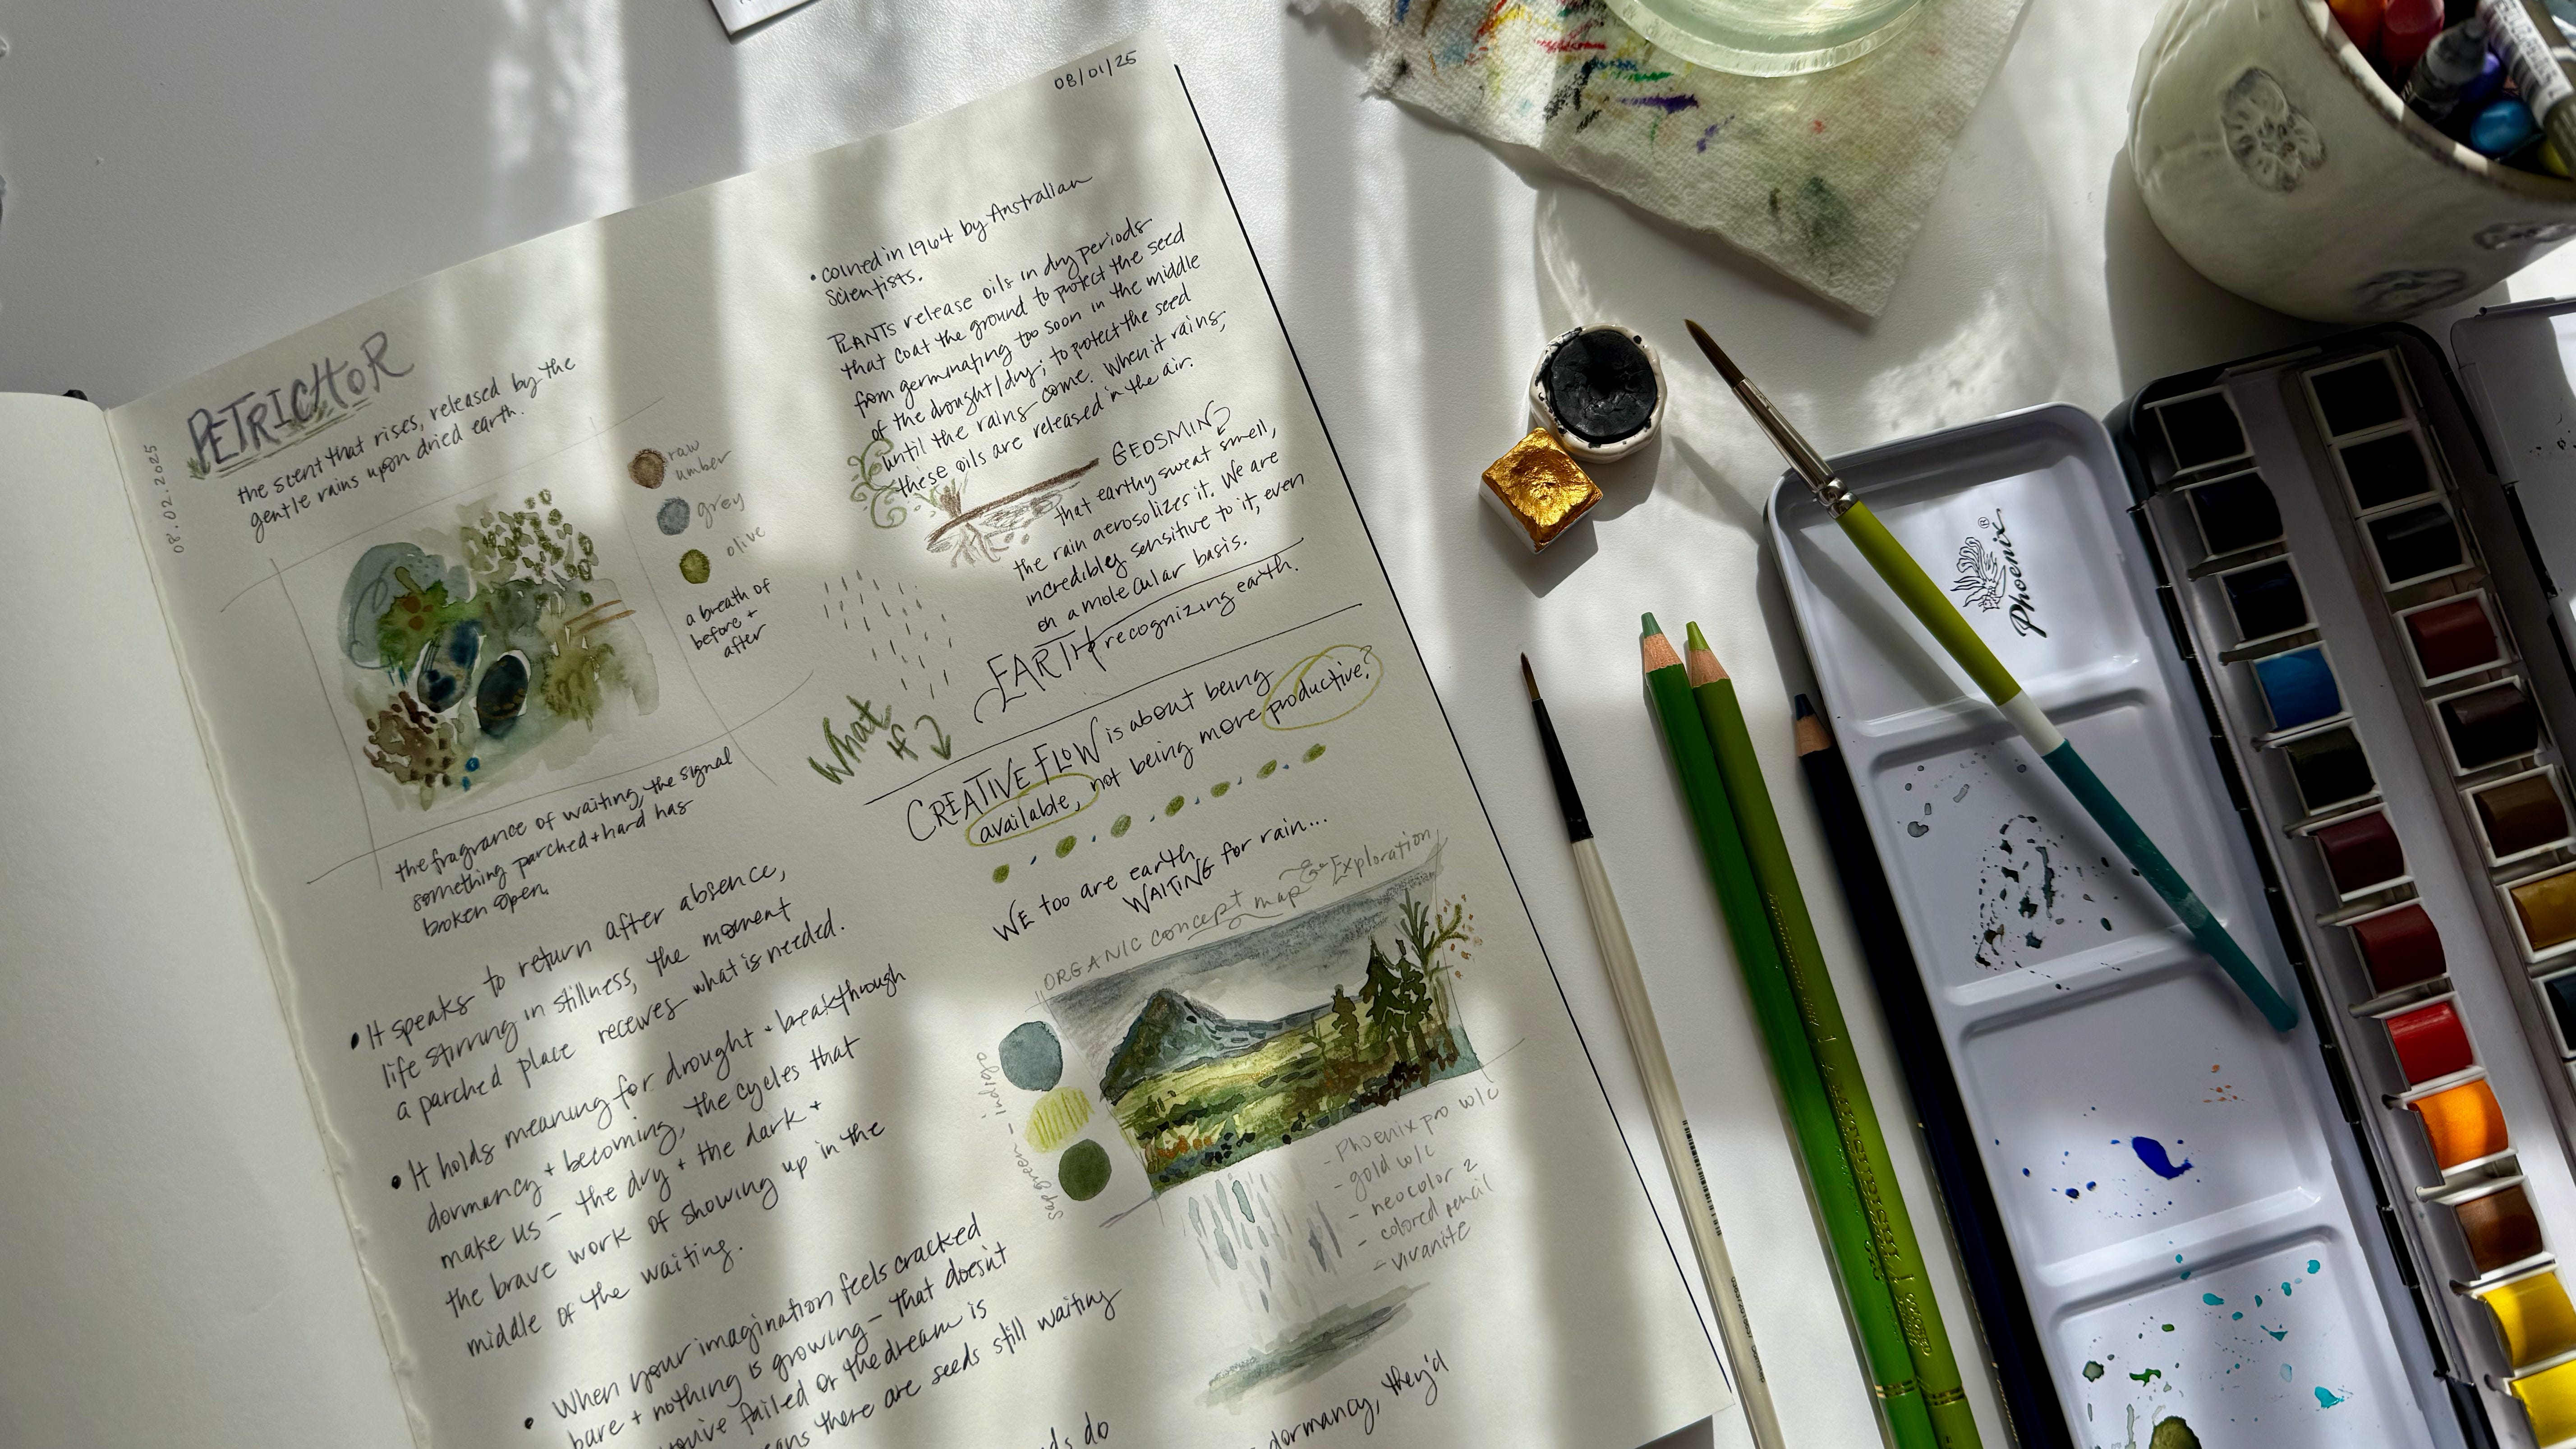 08/01/25
08.02.2025
PETRICHOR
the scent that rises, released by the
gentle rains upon dried earth.
raw
umber
grey
olive
a breath of
before +
after
the fragrance of waiting, the signal
something parched + hard has
broken open.
• It speaks to return after absence,
life stirring in stillness, the moment
a parched place receives what is needed.
• It holds meaning for drought + breakthrough
dormancy + becoming, the cycles that
make us - the dry + the dark +
the brave work of showing up in the
middle of the waiting.
• When your imagination feels cracked
bare + nothing is growing - that doesn't
you've failed or the dream is
there are seeds still waiting
do
• coined in 1964 by Australian
Scientists.
PLANTS release oils in dry periods
that coat the ground to protect the seed
from germinating too soon in the middle
of the drought/dry; to protect the seed
until the rains come. When it rains,
these oils are released in the air.
GEOSMIN?
that earthy sweat smell,
the rain aerosolizes it. We are
incredibley sensitive to it, even
on a molecular basis.
EARTH recognizing earth.
What
if
CREATIVE FLOW is about being
available, not being more productive?
WE too are earth
WAITING for rain...
ORGANIC concept map Exploration
indigo
sap green
- Phoenix pro w/c
- gold w/c
- neocolor 2
- colored pencil
- vivanite
dormancy, they'd
Phoenix®